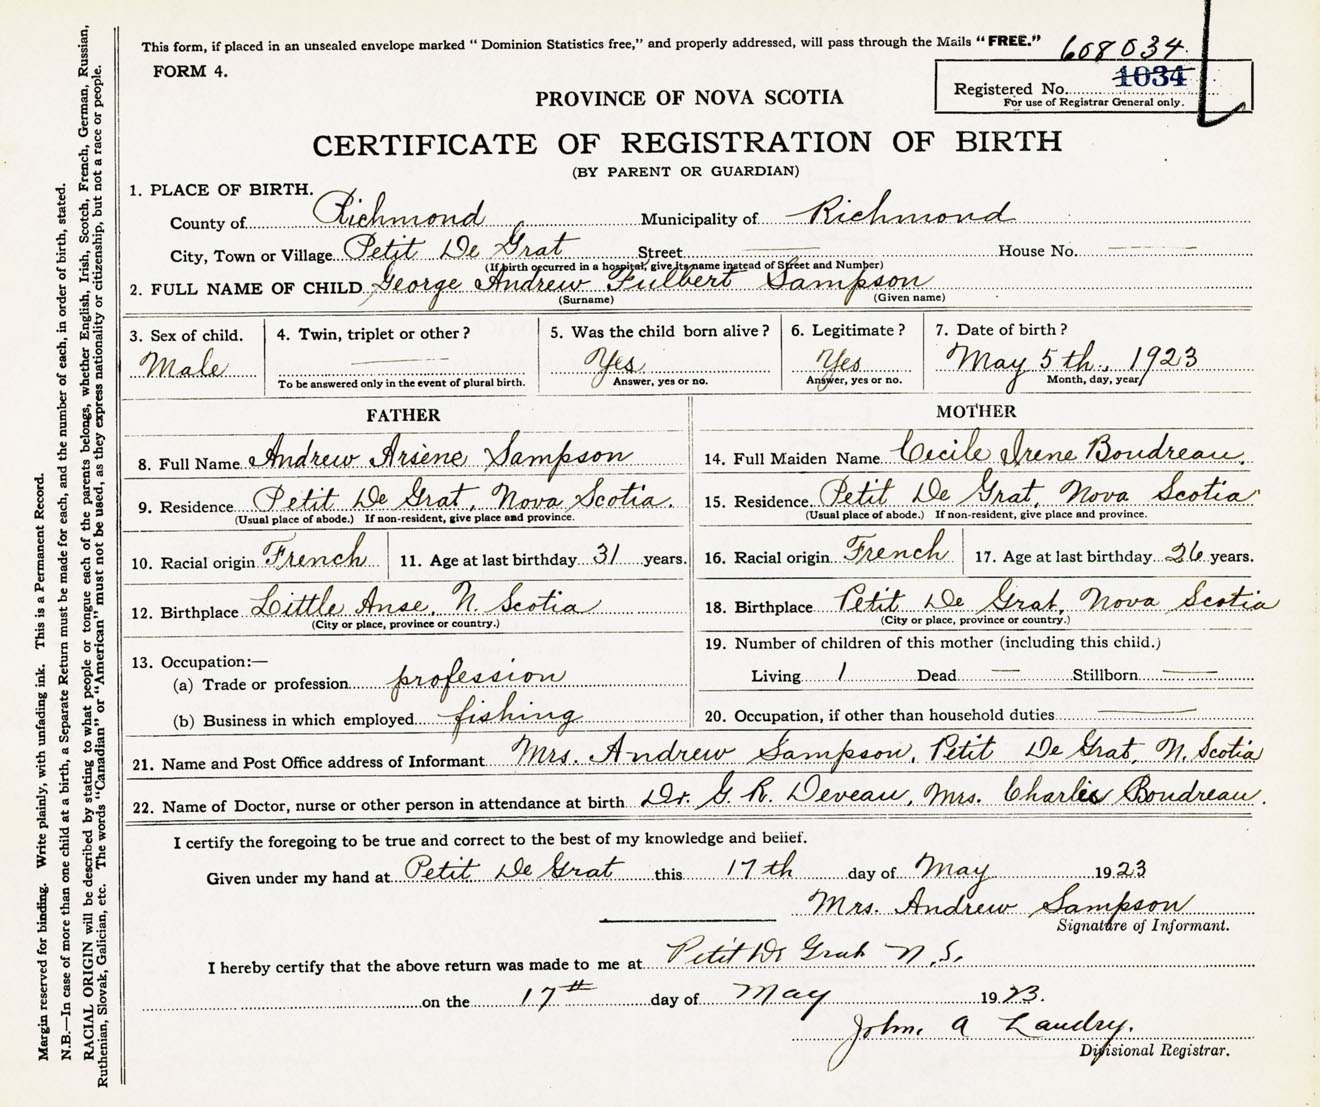 This form, if placed in an unsealed envelope marked "Dominion Statistics free," and properly addressed, will pass through the Mails "FREE."
608034
FORM 4.
1034
Registered No.
For use of Registrar General only.
PROVINCE OF NOVA SCOTIA
CERTIFICATE OF REGISTRATION OF BIRTH
(BY PARENT OR GUARDIAN)
1. PLACE OF BIRTH.
County of Richmond Municipality of Richmond
City, Town or Village Petit De Grat Street House No.
(If birth occurred in a hospital, give its name instead of Street and Number)
2. FULL NAME OF CHILD George Andrew Fulbert Sampson
(Surname) (Given name)
3. Sex of child. 4. Twin, triplet or other? 5. Was the child born alive? 6. Legitimate? 7. Date of birth?
Male Yes Yes May 5th., 1923
To be answered only in the event of plural birth. Answer, yes or no. Answer, yes or no. Month, day, year
FATHER MOTHER
8. Full Name Andrew Arsene Sampson 14. Full Maiden Name Cecile Irene Boudreau.
9. Residence Petit De Grat, Nova Scotia. 15. Residence Petit De Grat, Nova Scotia
(Usual place of abode.) If non-resident, give place and province. (Usual place of abode.) If non-resident, give place and province.
10. Racial origin French 11. Age at last birthday 31 years. 16. Racial origin French 17. Age at last birthday 26 years.
12. Birthplace Little Anse, N. Scotia 18. Birthplace Petit De Grat, Nova Scotia
(City or place, province or country.) (City or place, province or country.)
19. Number of children of this mother (including this child.)
13. Occupation:—
(a) Trade or profession profession Living 1 Dead — Stillborn —
(b) Business in which employed fishing 20. Occupation, if other than household duties
21. Name and Post Office address of Informant Mrs. Andrew Sampson, Petit De Grat, N. Scotia
22. Name of Doctor, nurse or other person in attendance at birth Dr. G. R. Deveau, Mrs. Charlie Boudreau.
I certify the foregoing to be true and correct to the best of my knowledge and belief.
Given under my hand at Petit De Grat this 17th day of May 1923
Mrs. Andrew Sampson
Signature of Informant.
I hereby certify that the above return was made to me at Petit De Grat N.S.
on the 17th day of May 1923.
John. A Landry.
Divisional Registrar.
Margin reserved for binding. Write plainly, with unfading ink. This is a Permanent Record.
N.B.—In case of more than one child at a birth, a Separate Return must be made for each, and the number of each, in order of birth, stated.
RACIAL ORIGIN will be described by stating to what people or tongue each of the parents belongs, whether English, Irish, Scotch, French, German, Russian,
Ruthenian, Slovak, Galician, etc. The words "Canadian" or "American" must not be used, as they express nationality or citizenship, but not a race or people.